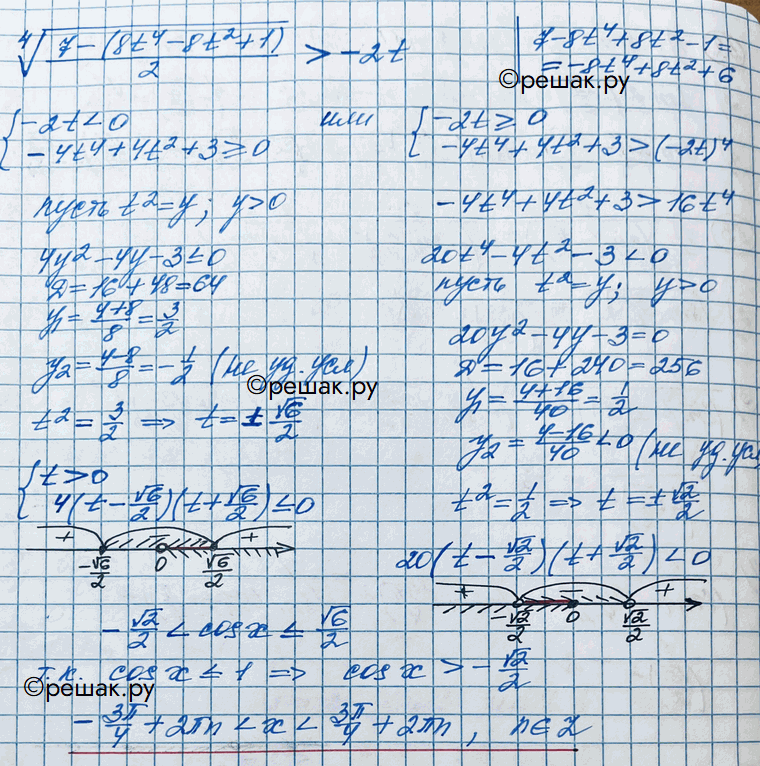 ⁴√((7-(8t⁴-8t²+1))/2) > -2t
7-8t⁴+8t²-1=
=-8t⁴+8t²+6
©решак.ру
{-2t<0
-4t⁴+4t²+3≥0
или
{-2t≥0
-4t⁴+4t²+3>(-2t)⁴
пусть t²=y; y>0
4y²-4y-3≤0
D=16+48=64
y₁=(4+8)/8=3/2
y₂=(4-8)/8=-1/2 (не уд. усл)
©решак.ру
t²=3/2 ⇒ t=±√6/2
{t>0
4(t-√6/2)(t+√6/2)≤0
+ - +
-√6/2 0 √6/2
-4t⁴+4t²+3>16t⁴
20t⁴-4t²-3<0
пусть t²=y; y>0
20y²-4y-3=0
D=16+240=256
y₁=(4+16)/40=1/2
y₂=(4-16)/40<0 (не уд. усл
t²=1/2 ⇒ t=±√2/2
20(t-√2/2)(t+√2/2)<0
+ - +
-√2/2 0 √2/2
-√2/2 < cos x ≤ √6/2
т.к. cos x ≤ 1 ⇒ cos x > -√2/2
©решак.ру
-3π/4+2πn < x < 3π/4+2πn, n∈Z